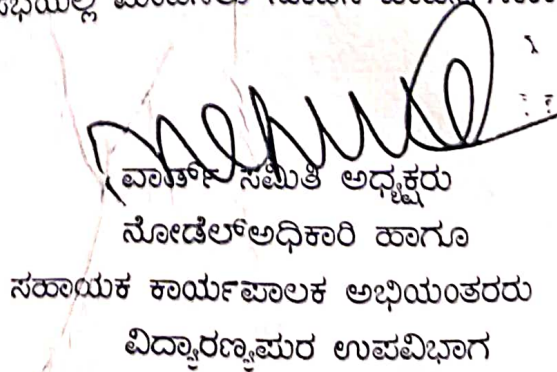 ವಾರ್ಡ್ ಸಮಿತಿ ಅಧ್ಯಕ್ಷರು
ನೋಡೆಲ್‌ಅಧಿಕಾರಿ ಹಾಗೂ
ಸಹಾಯಕ ಕಾರ್ಯಪಾಲಕ ಅಭಿಯಂತರರು
ವಿದ್ಯಾರಣ್ಯಪುರ ಉಪವಿಭಾಗ